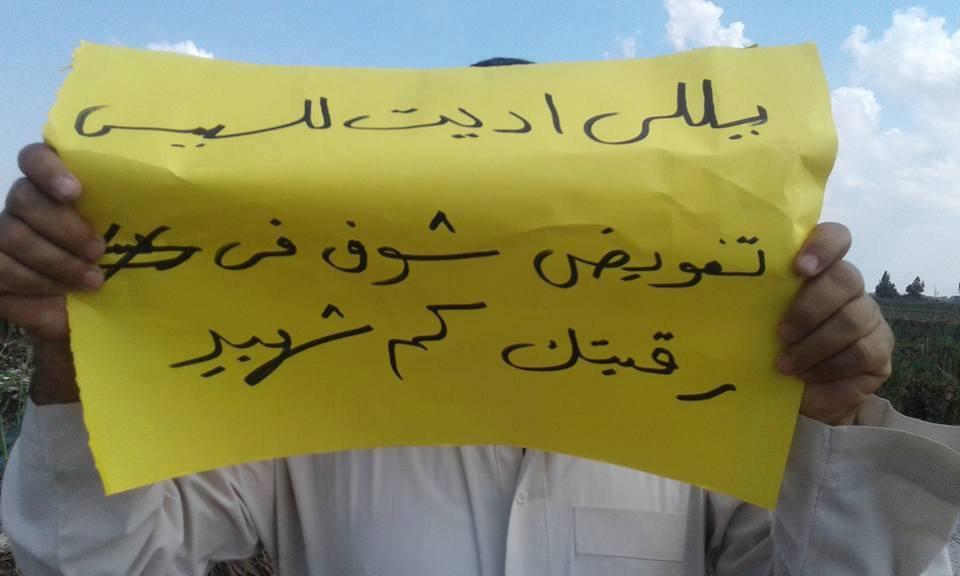 يللى اديت للسيسى
تفويض شوف فى
رقبتك كم شهيد